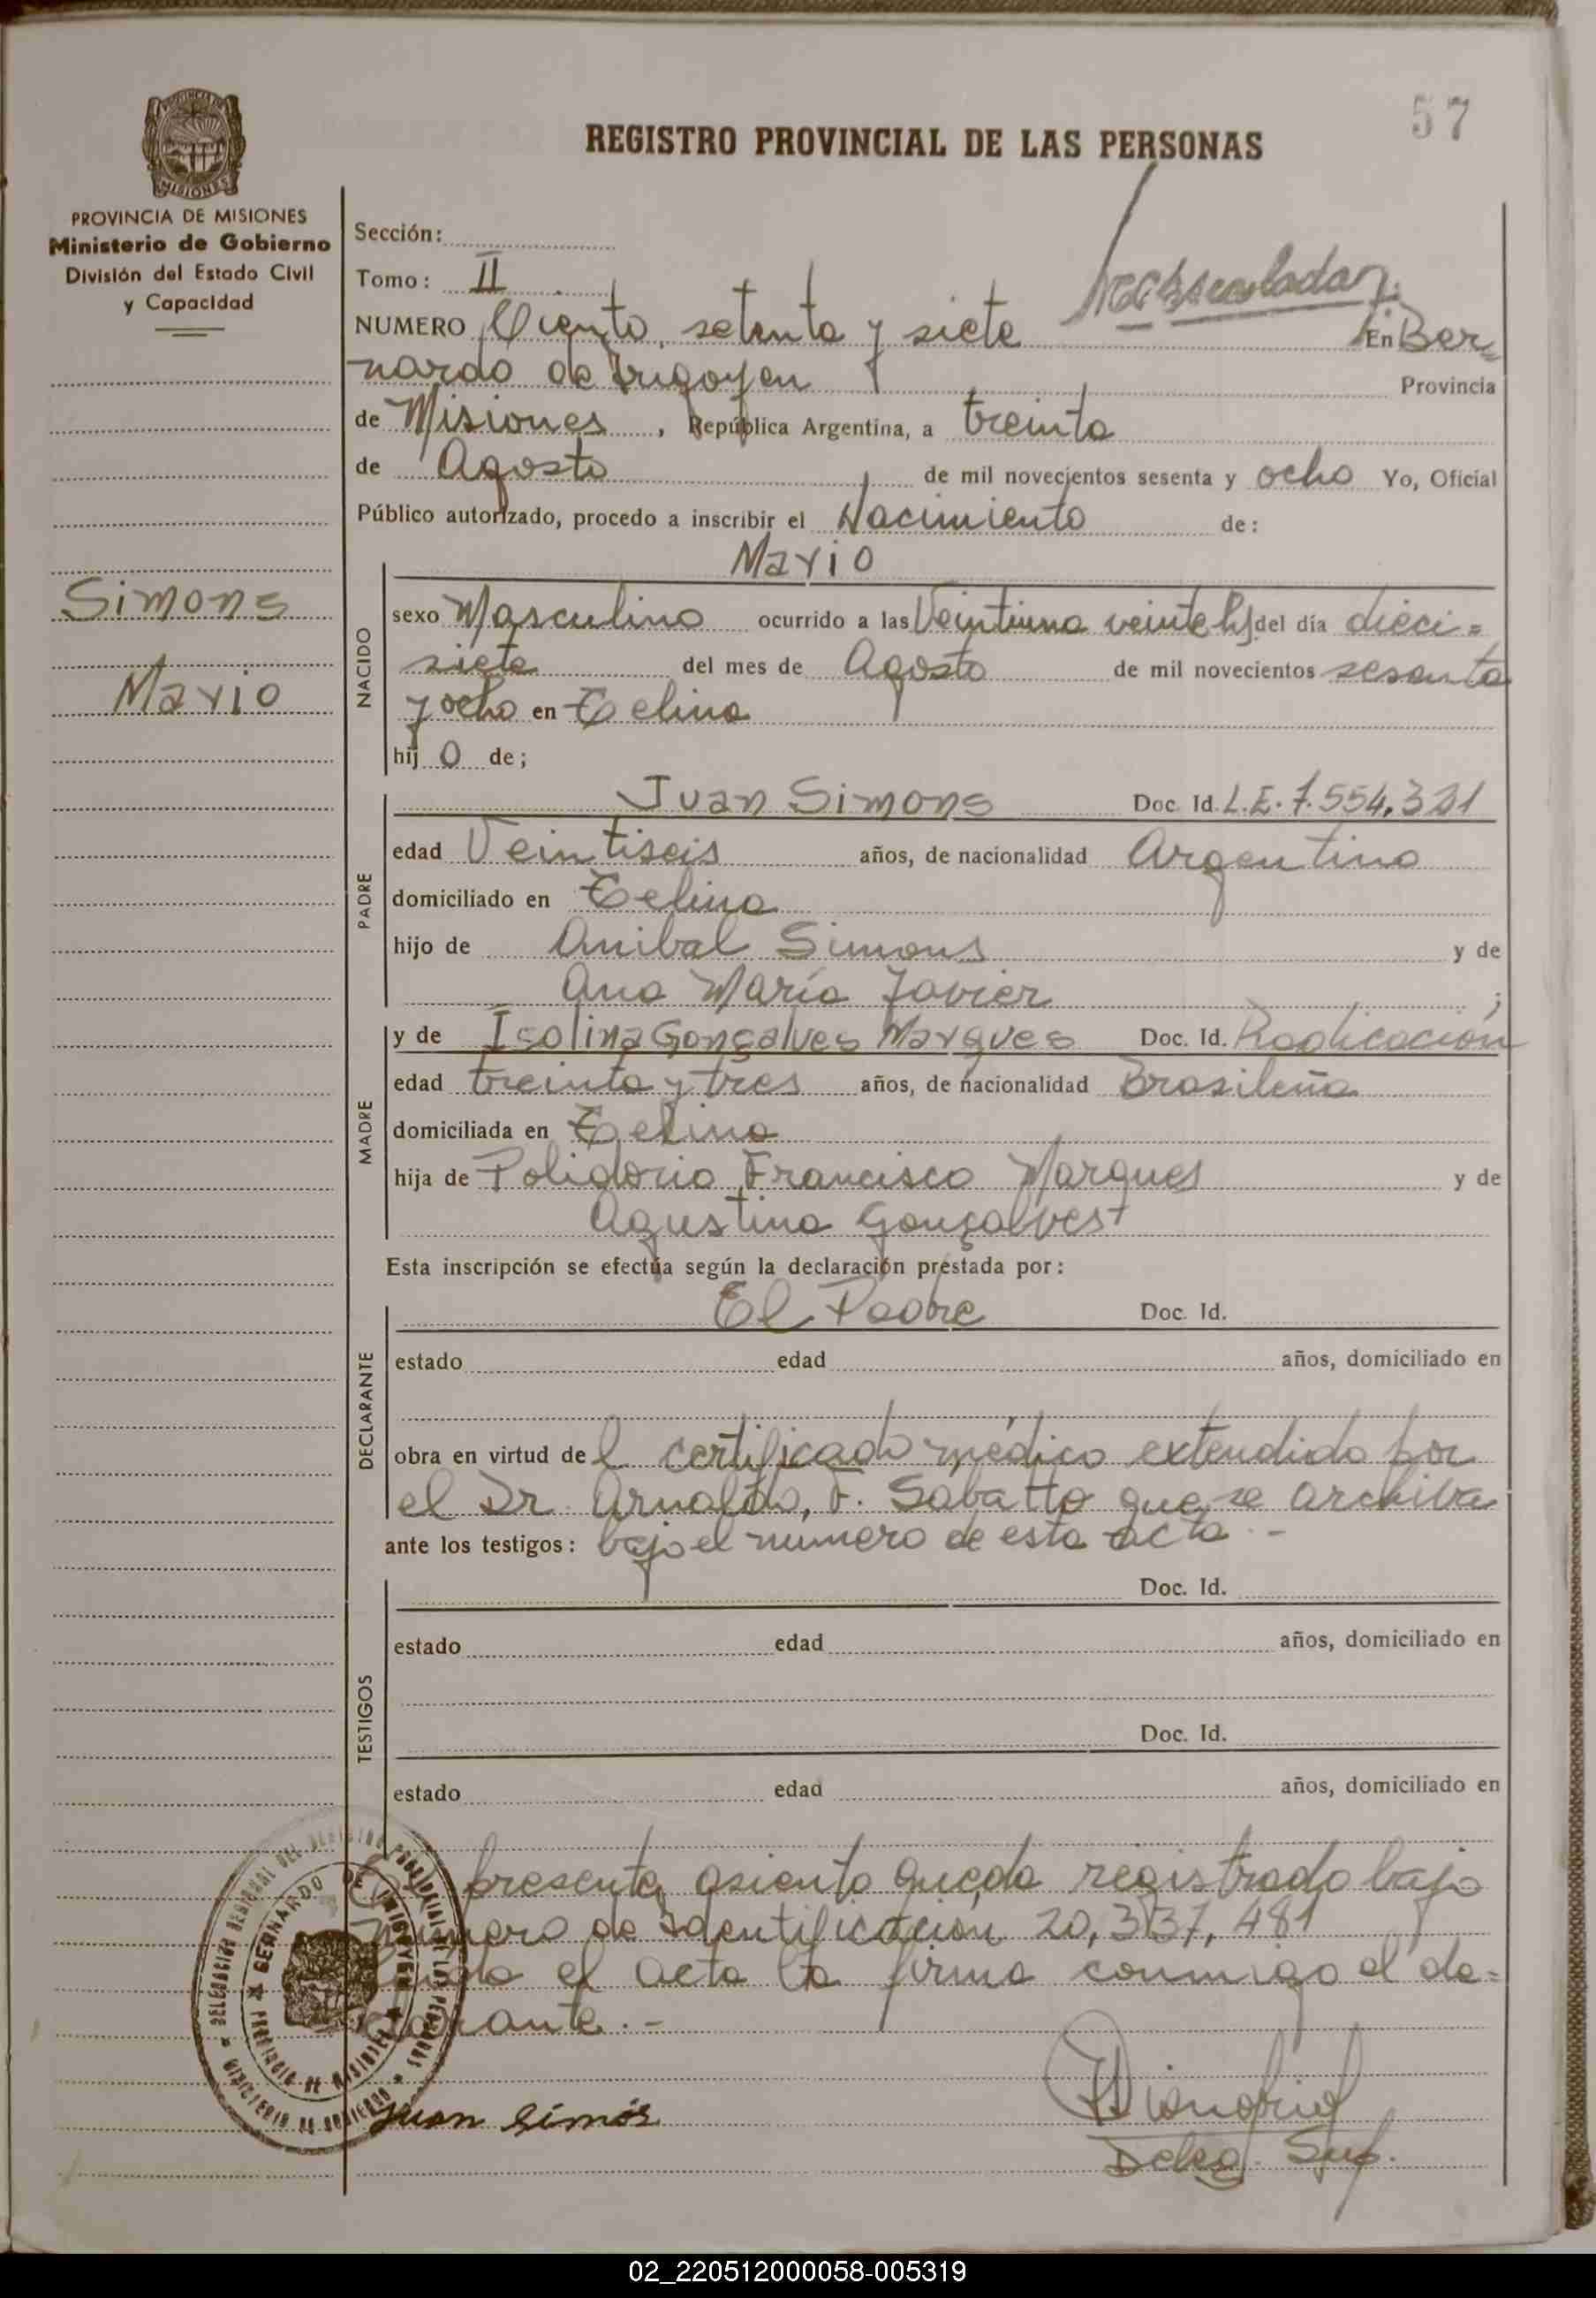 57
REGISTRO PROVINCIAL DE LAS PERSONAS
MISIONES
PROVINCIA DE MISIONES
Ministerio de Gobierno
División del Estado Civil
y Capacidad
Simons
Mario
Sección:
Tomo: II
NUMERO Ciento setenta y siete En Ber=
nardo de Irigoyen Provincia
de Misiones, República Argentina, a treinta
de Agosto de mil novecientos sesenta y ocho Yo, Oficial
Público autorizado, procedo a inscribir el Nacimiento de:
Mario
NACIDO
sexo Masculino ocurrido a las Veintiuna veinte hs del día dieci=
siete del mes de Agosto de mil novecientos sesenta
y ocho en Celina
hijo de;
PADRE
Juan Simons Doc. Id. L.E. 7.554.321
edad Veintiseis años, de nacionalidad Argentino
domiciliado en Celina
hijo de Anibal Simons y de
Ana María Javier ;
MADRE
y de Isolina Gonçalves Marques Doc. Id. Radicación
edad treinta y tres años, de nacionalidad Brasileña
domiciliada en Celina
hija de Polidorio Francisco Marques y de
Agustina Gonçalves
Esta inscripción se efectúa según la declaración prestada por:
DECLARANTE
El Padre Doc. Id.
estado edad años, domiciliado en
obra en virtud del certificado médico extendido por
el Dr. Arnaldo, F. Sabatto que se archiva
ante los testigos: bajo el numero de esta acta.-
TESTIGOS
Doc. Id.
estado edad años, domiciliado en
Doc. Id.
estado edad años, domiciliado en
El presente asiento queda registrado bajo
numero de Identificación 20,337,481
el acta la firma conmigo el de=
clarante.-
Juan Simós
Deleg. Sup.
02_220512000058-005319